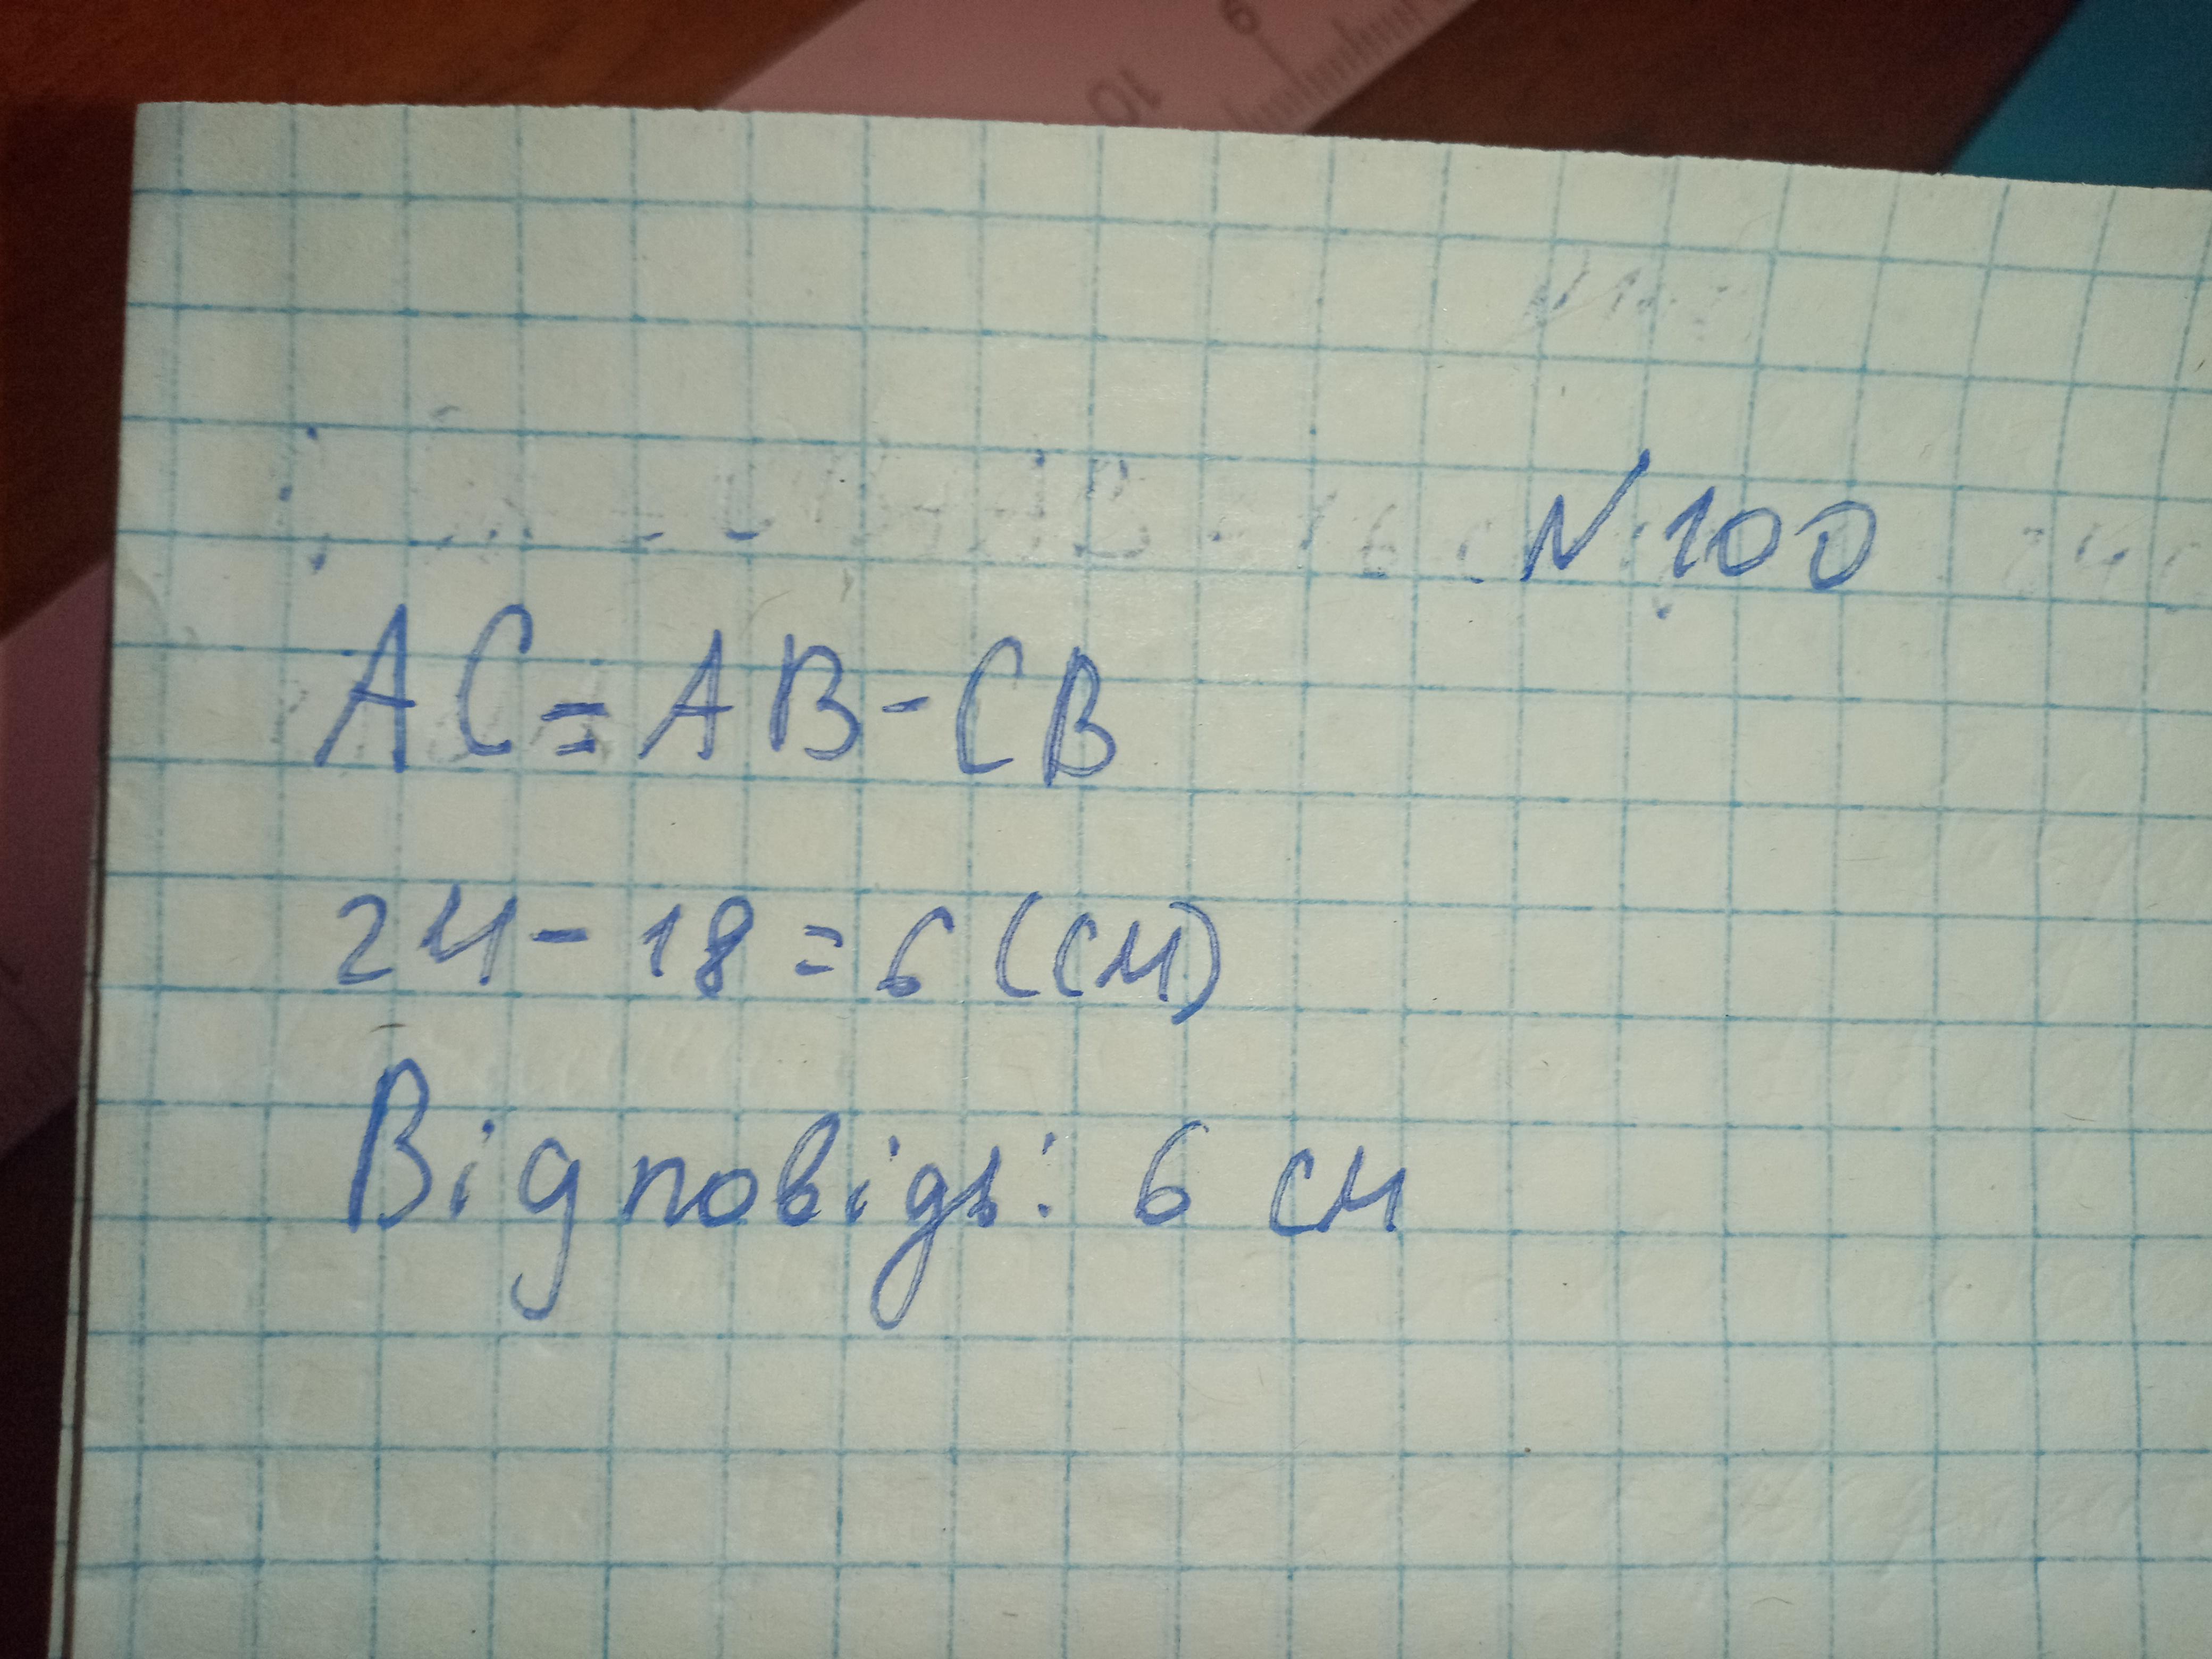 9
10
N 100
AC = AB - CB
24 - 18 = 6 (см)
Відповідь: 6 см